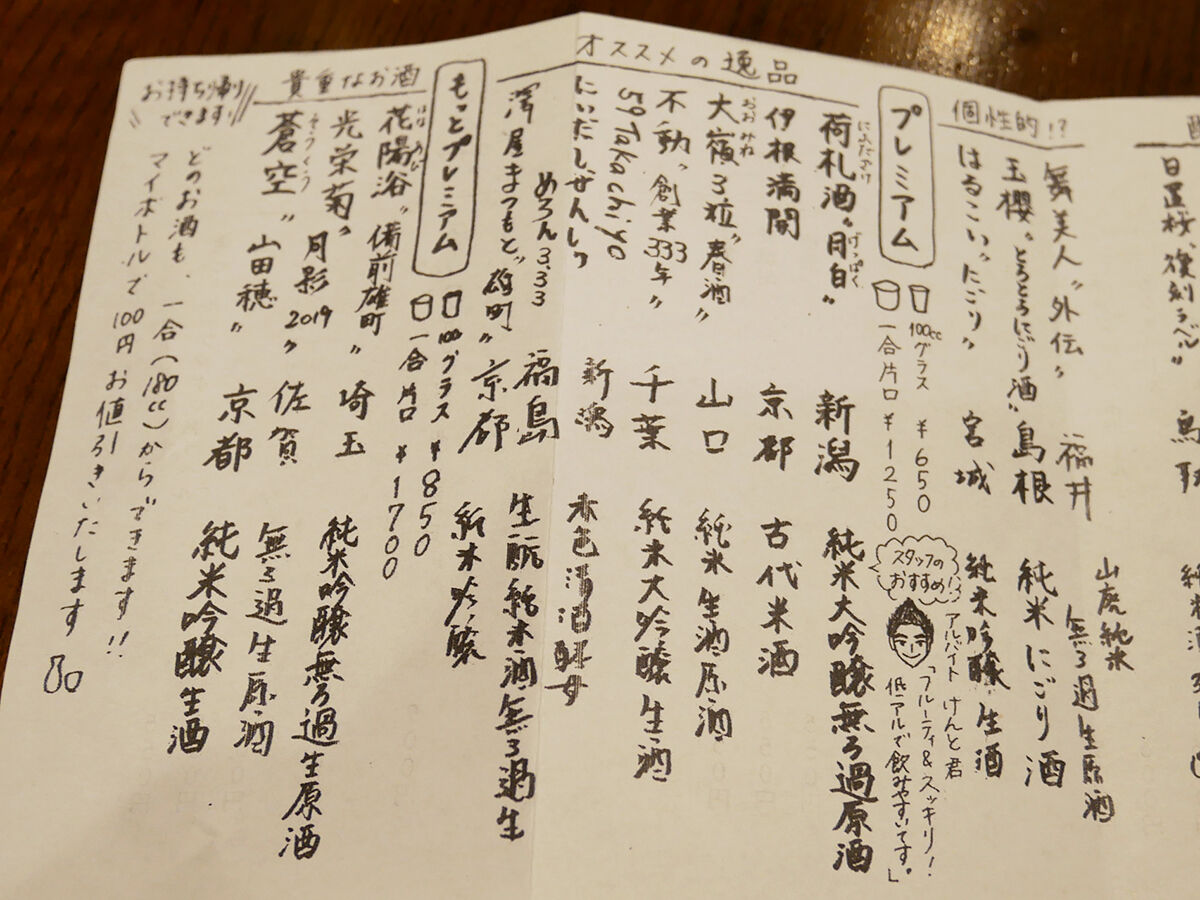 日置桜"復刻ラベル"
純米酒
個性的!?
舞美人"外伝" 福井 山廃純米
無ろ過生原酒
玉櫻"とろとろにごり酒" 島根 純米にごり酒
はるこい"にごり" 宮城 純米吟醸生酒
プレミアム
100ccグラス ¥650
一合片口 ¥1250
スタッフのおすすめ!!
アルバイト けんと君
「フルーティ&スッキリ!
低アルで飲みやすいです。」
オススメの逸品
荷札酒"月白" 新潟 純米大吟醸無ろ過原酒
にふだざけ
げっぱく
伊根満開 京都 古代米酒
大嶺3粒"春酒" 山口 純米生酒原酒
おおみね
不動"創業333年" 千葉 純米大吟醸生酒
59Takachiyo 新潟
にいだしぜんしゅ
めろん3.33 福島 生酛純米酒無ろ過生
澤屋まつもと"雄町" 京都 純米吟醸
もっとプレミアム
100グラス ¥850
一合片口 ¥1700
貴重なお酒
花陽浴"備前雄町" 埼玉 純米吟醸無ろ過生原酒
はな あび
光栄菊"月影2019" 佐賀 無ろ過生原酒
蒼空"山田穂" 京都 純米吟醸生酒
そうくう
お持ち帰り
できます!
どのお酒も、一合(180cc)からできます!!
マイボトルで100円お値引きいたします